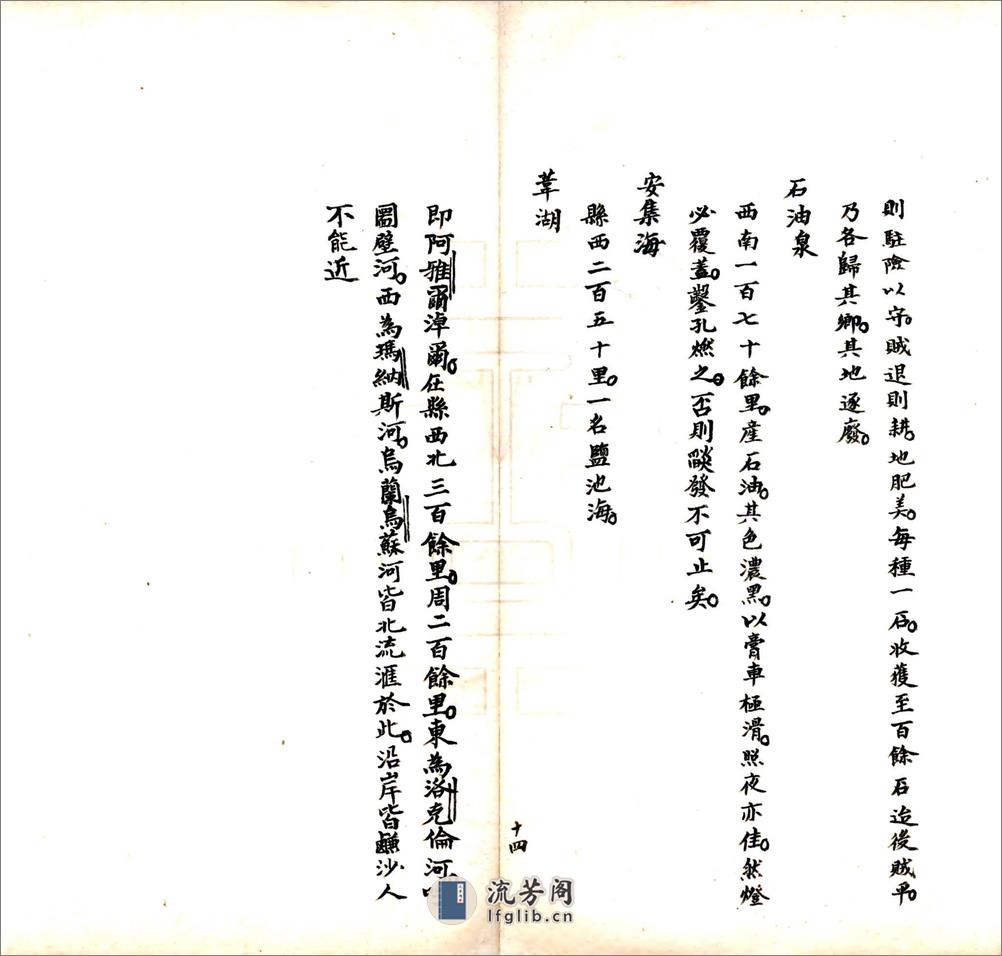 則駐險以守。賊退則耕。地肥美。每種一石。收獲至百餘石迨後賊平。
乃各歸其鄉。其地逐廢。
石油泉
西南一百七十餘里。產石油。其色濃黑。以膏車極滑。照夜亦佳。然燈
必覆蓋。鑿孔燃之。否則燄發不可止矣。
安集海
縣西二百五十里。一名鹽池海。
葦湖
即阿雅爾淖爾。在縣西北三百餘里。周二百餘里。東為洛克倫河
圖壁河。西為瑪納斯河。烏蘭烏蘇河皆北流滙於此。沿岸皆鹻沙人
不能近
十四
流芳阁
lfglib.cn